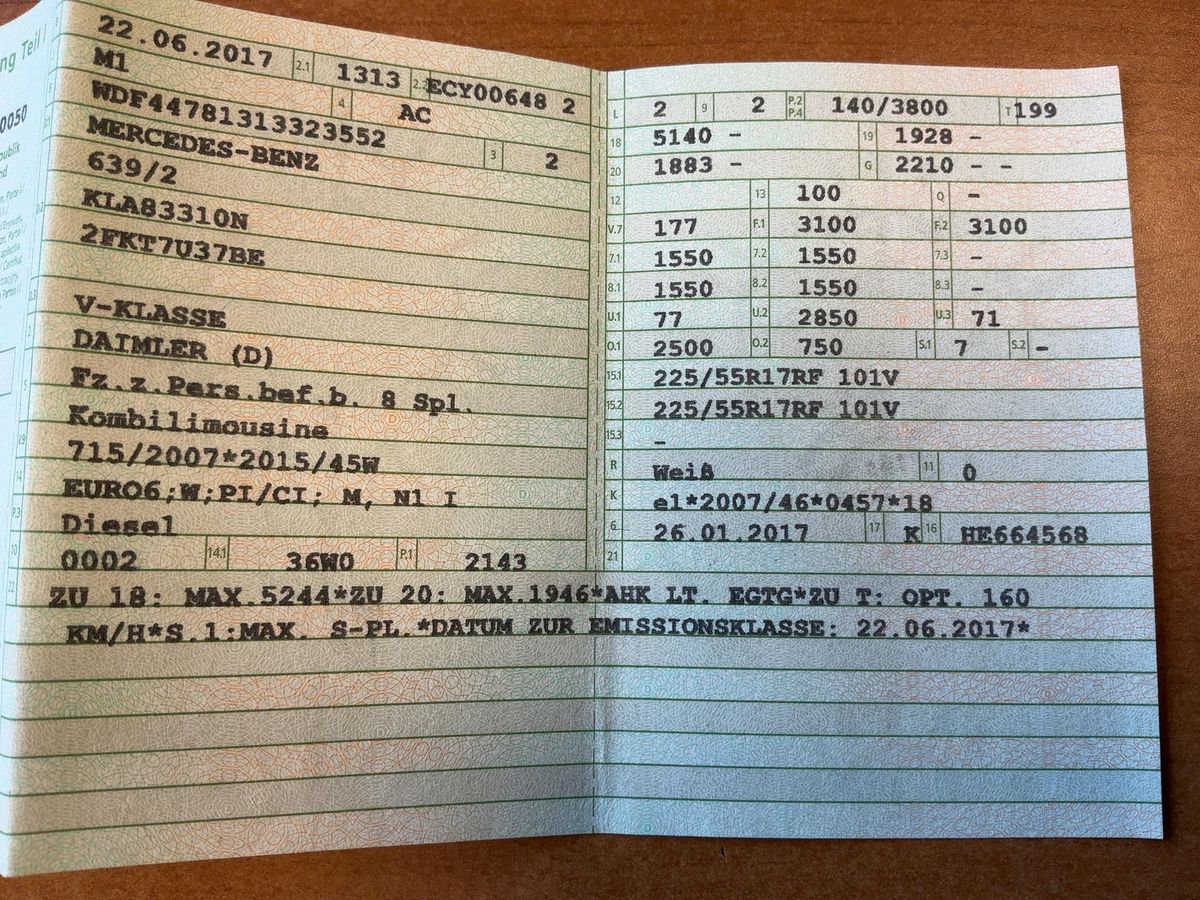 ng Teil I
0050
22.06.2017 2.1 1313 2.2 ECY00648 2
M1 4 AC
WDF44781313323552 3 2
MERCEDES-BENZ
639/2
KLA83310N
2FKT7U37BE
V-KLASSE
DAIMLER (D)
Fz.z.Pers.bef.b. 8 Spl.
Kombilimousine
715/2007*2015/45W
EURO6;W;PI/CI; M, N1 I
Diesel
10 0002 14.1 36W0 P.1 2143
L 2 9 2 P.2 P.4 140/3800 T 199
18 5140 - 19 1928 -
20 1883 - G 2210 - -
12 13 100 Q -
V.7 177 F.1 3100 F.2 3100
7.1 1550 7.2 1550 7.3 -
8.1 1550 8.2 1550 8.3 -
U.1 77 U.2 2850 U.3 71
O.1 2500 O.2 750 S.1 7 S.2 -
15.1 225/55R17RF 101V
15.2 225/55R17RF 101V
15.3 -
R Weiß 11 0
K e1*2007/46*0457*18
6 26.01.2017 17 K 16 HE664568
21
22 ZU 18: MAX.5244*ZU 20: MAX.1946*AHK LT. EGTG*ZU T: OPT. 160
KM/H*S.1:MAX. S-PL.*DATUM ZUR EMISSIONSKLASSE: 22.06.2017*